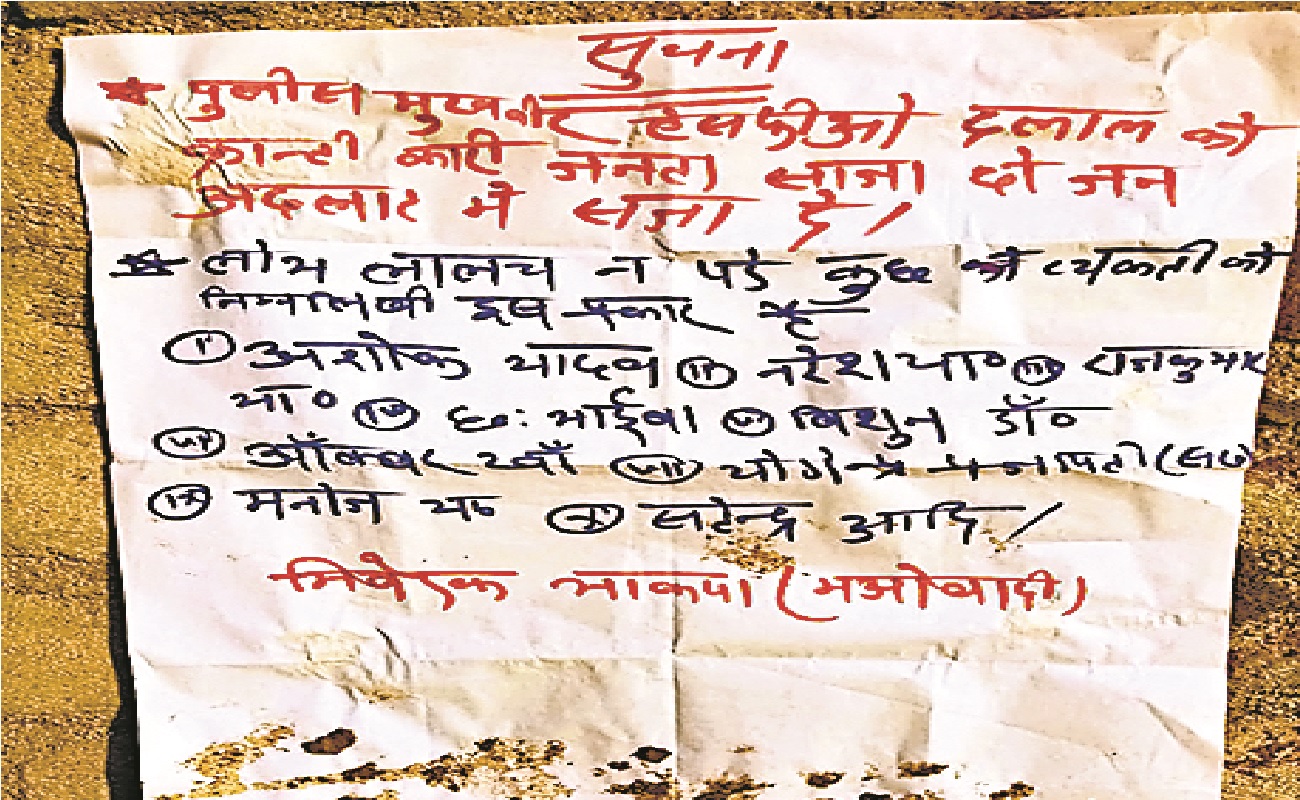 सुचना
★ पुलीस मुखबीर एसपीओ दलाल को
क्रान्ती कारी जनता साजा दो जन
अदलात मे सजा दे/
★ लोभ लालच न पडे कुछ को व्यकती को
निम्नलिखी इस प्रकार है
(I) अशोक यादव (II) नरेश या० (III) राजकुमार
या० (IV) छ: भाईवा (V) मिथुन डॉ०
(VI) ऑकबर खाँ (VII) योगेन्द्र प्रजापती (
(IX) मनोज या० (X) सटेन्द्र आदि/
निवेदक भाकपा (मओवादी)